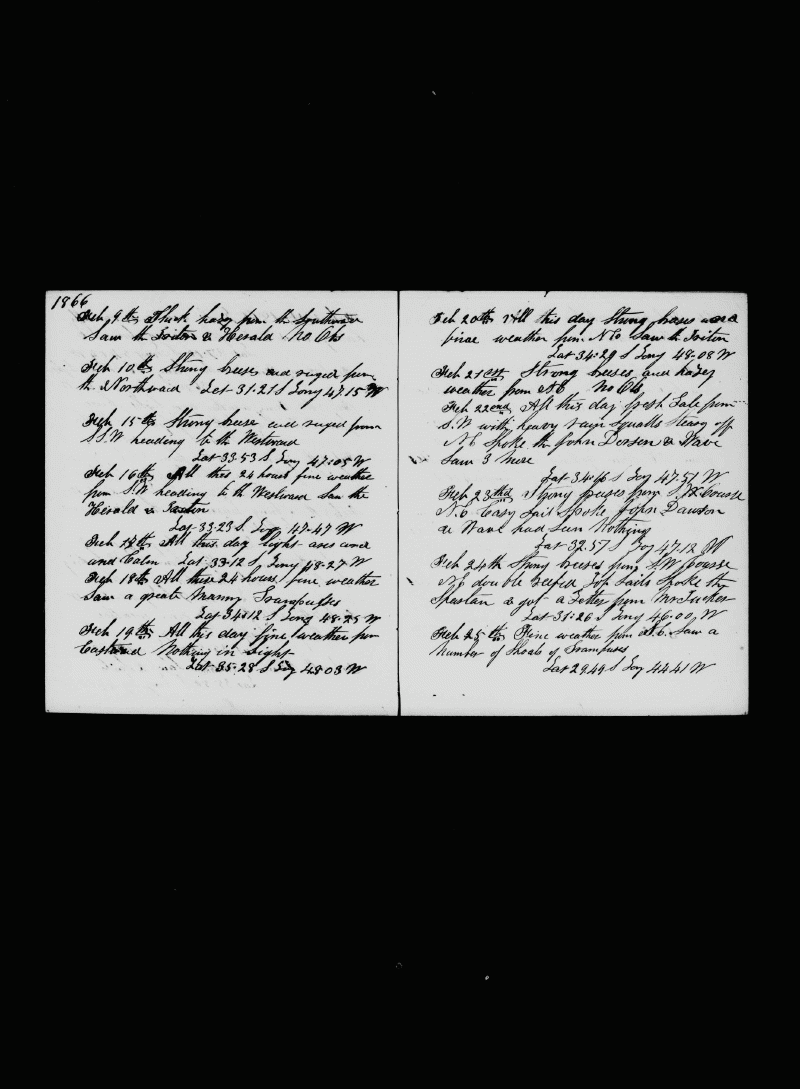 1866
Feb 9th Thick hazy from the Southward
Saw the Triton & Herald No Obs
Feb 10th Strong brees and ruged from
the Northward Lat 31-21 S Long 47.15 W
Feb 15th Strong breese and ruged from
S S.W heading to the Westward
Lat 33.53 S Long 47:05 W
Feb 16th All this 24 hours fine weather
from S.W heading to the Westward Saw the
Herald & Triton
Lat 33.23 S. Long 47-47 W
Feb th All this day light aires and
and Calm Lat 33-12 S Long 48-27 W
Feb 18th All these 24 hours fine weather
Saw a greate manny Grampusses
Lat 34:12 S Long 48:25 W
Feb 19th All this day fine weather from
Eastward Nothing in Sight
Lat 35:28 S Long 48 03 W
Feb 20th All this day Strong breses and
fine weather from N E Saw the Triton
Lat 34:29 S Long 48-08 W
Feb 21est Strong breeses and hazey
weather from NE No Obs
Feb 22end All this day fresh Gale from
S.W with heavy rain Squalls Steary off
N E Spoke the John Dorson & Wave
Saw 3 more
Lat 34:16 S Long 47:51 W
Feb 23thd Strong breeses from S.W. Course
N.E Easy Sail Spoke John Dawson
& Wave had Seen Nothing
Lat 32.57 S Long 47.12 W
Feb 24th Strong breeses from S.W Course
NE double reefed Top Sails Spoke the
Spartan & got a Letter from Mr Tucker
Lat 31:26 S Long 46:00 W
Feb 25th Fine weather from N.E. Saw a
Number of Shoals of Grampuses
Lat 29.49 S Long 44 41 W